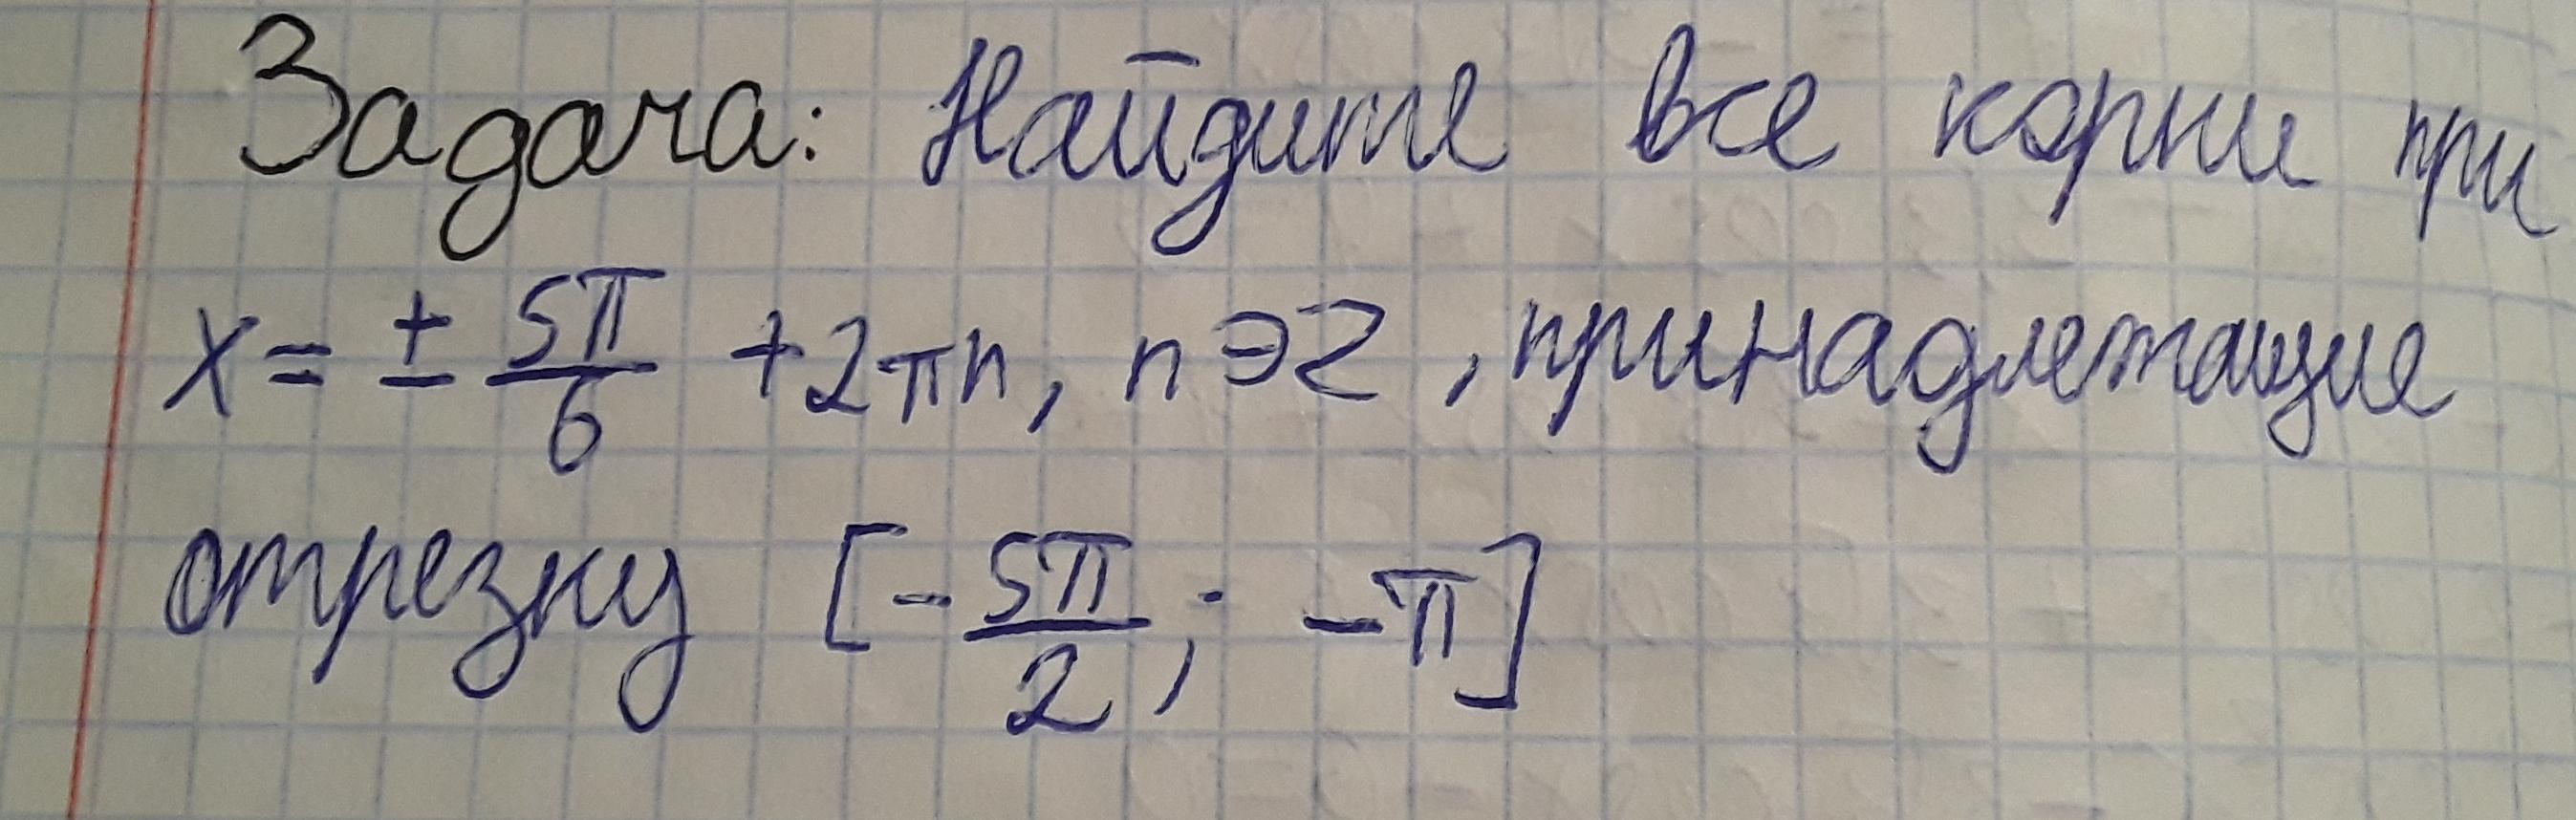 Задача: Найдите все корни при
x = ± 5π/6 + 2πn, n∋Z, принадлежащие
отрезку [-5π/2; -π]